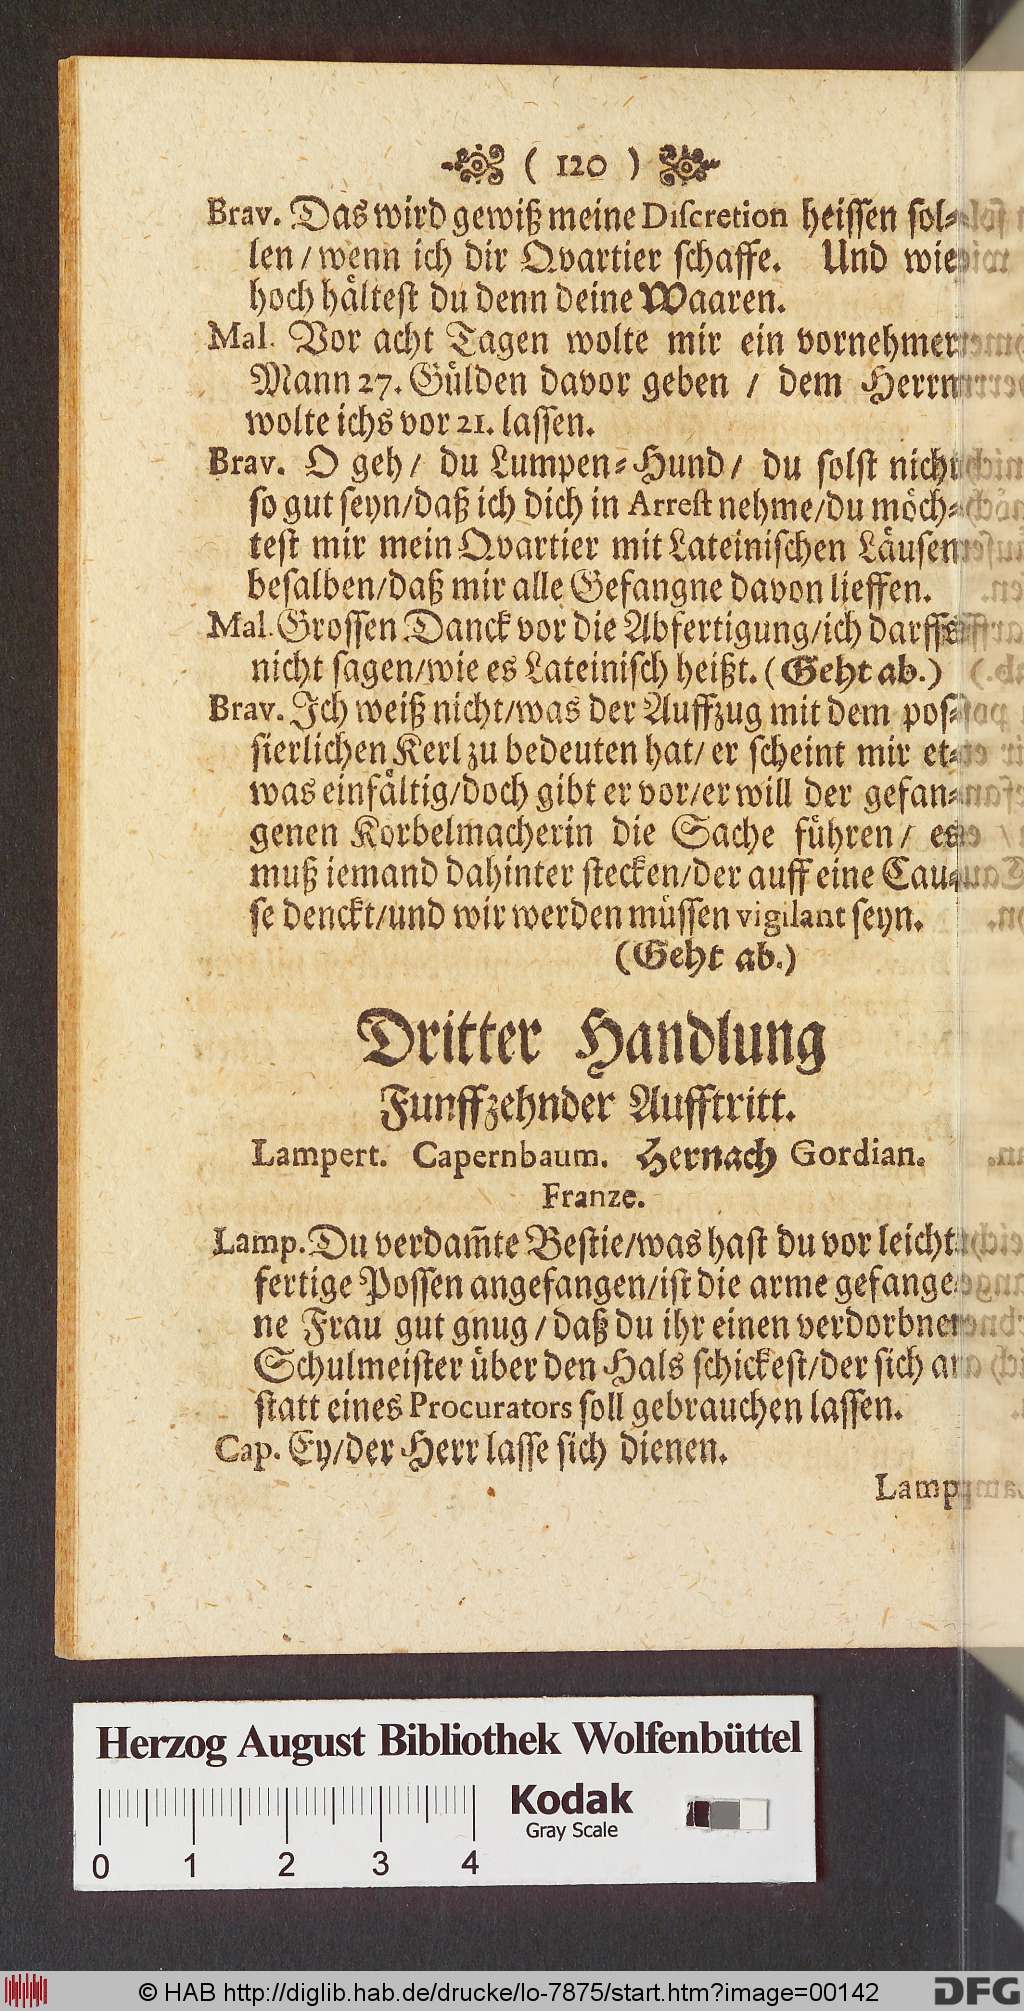 ( 120 )
Brav. Das wird gewiß meine Discretion heissen sol-
len / wenn ich dir Qvartier schaffe. Und wie
hoch hältest du denn deine Waaren.
Mal. Vor acht Tagen wolte mir ein vornehmer
Mann 27. Gülden davor geben / dem Herrn
wolte ichs vor 21. lassen.
Brav. O geh / du Lumpen-Hund / du solst nicht
so gut seyn/daß ich dich in Arrest nehme/du möch-
test mir mein Qvartier mit Lateinischen Läusen
besalben/daß mir alle Gefangne davon lieffen.
Mal. Grossen Danck vor die Abfertigung/ich darffs
nicht sagen/wie es Lateinisch heißt. (Geht ab.)
Brav. Ich weiß nicht/was der Auffzug mit dem pos-
sierlichen Kerl zu bedeuten hat/ er scheint mir et-
was einfältig/doch gibt er vor/er will der gefan-
genen Korbelmacherin die Sache führen / es
muß iemand dahinter stecken/der auff eine Cau-
se denckt/und wir werden müssen vigilant seyn.
(Geht ab.)
Dritter Handlung
Funffzehnder Aufftritt.
Lampert. Capernbaum. Hernach Gordian.
Franze.
Lamp. Du verdam̃te Bestie/was hast du vor leicht-
fertige Possen angefangen/ist die arme gefange-
ne Frau gut gnug / daß du ihr einen verdorbnen
Schulmeister über den Hals schickest/der sich an
statt eines Procurators soll gebrauchen lassen.
Cap. Ey/der Herr lasse sich dienen.
Lamp.
Herzog August Bibliothek Wolfenbüttel
Kodak
Gray Scale
0 1 2 3 4
© HAB http://diglib.hab.de/drucke/lo-7875/start.htm?image=00142
DFG